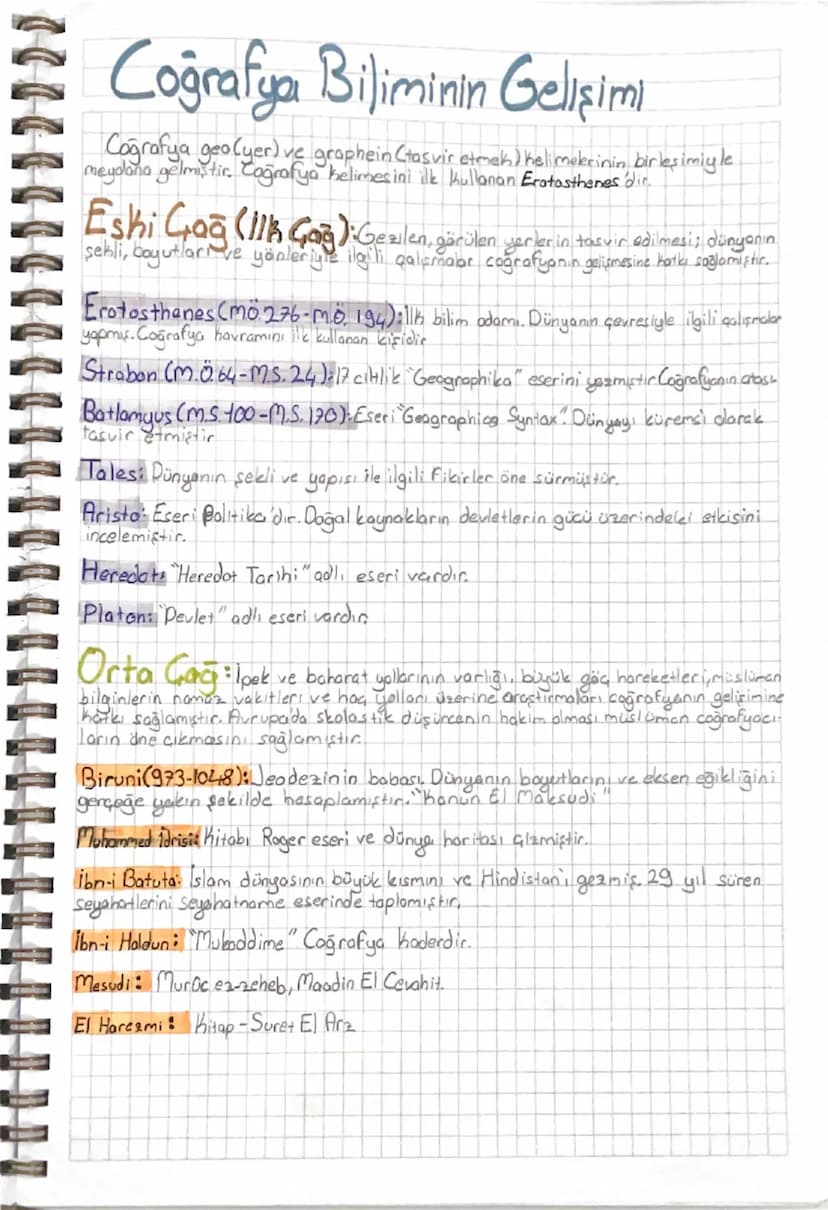 Coğrafya Biliminin Gelişimi
Coğrafya geo(yer) ve graphein (tasvir etmek) kelimelerinin birleşimiyle
meydana gelmiştir. Coğrafya kelimesini ilk kullanan Eratosthenes'dir.
Eski Çağ (İlk Çağ): Gezilen, görülen yerlerin tasvir edilmesi; dünyanın
şekli, boyutları ve yönleriyle ilgili çalışmalar coğrafyanın gelişmesine katkı sağlamıştır.
Eratosthanes (MÖ. 276-M.Ö. 194): İlk bilim adamı. Dünyanın çevresiyle ilgili çalışmalar
yapmış. Coğrafya kavramını ilk kullanan kişidir
Strabon (M.Ö. 64-M.S. 24): 17 ciltlik "Geographika" eserini yazmıştır. Coğrafyanın atası.
Batlamyus (M.S. 100-M.S. 170): Eseri "Geographica Syntax". Dünyayı küremsi olarak
tasvir etmiştir
Tales: Dünyanın şekli ve yapısı ile ilgili fikirler öne sürmüştür.
Aristo: Eseri Politika'dır. Doğal kaynakların devletlerin gücü üzerindeki etkisini
incelemiştir.
Heredot: "Heredot Tarihi" adlı eseri vardır.
Platon: "Devlet" adlı eseri vardır.
Orta Çağ: İpek ve baharat yollarının varlığı, büyük göç hareketleri, müslüman
bilginlerin namaz vakitleri ve haç yolları üzerine araştırmaları coğrafyanın gelişimine
katkı sağlamıştır. Avrupa'da skolastik düşüncenin hakim olması müslüman coğrafyacı-
ların öne çıkmasını sağlamıştır.
Biruni(973-1048): Jeodezinin babası. Dünyanın boyutlarını ve eksen eğikliğini
gerçeğe yakın şekilde hesaplamıştır. "Kanun El Maksudi"
Muhammed idrisi: Kitabı Roger eseri ve dünya haritası çizmiştir.
İbn-i Batuta: İslam dünyasının büyük kısmını ve Hindistan'ı gezmiş. 29 yıl süren
seyahatlerini seyahatname eserinde toplamıştır.
İbn-i Haldun: "Mukaddime" Coğrafya kaderdir.
Mesudi: Murûc ez-zeheb, Maadin El Cevahit.
El Harezmi: Kitap-Suret El Arz